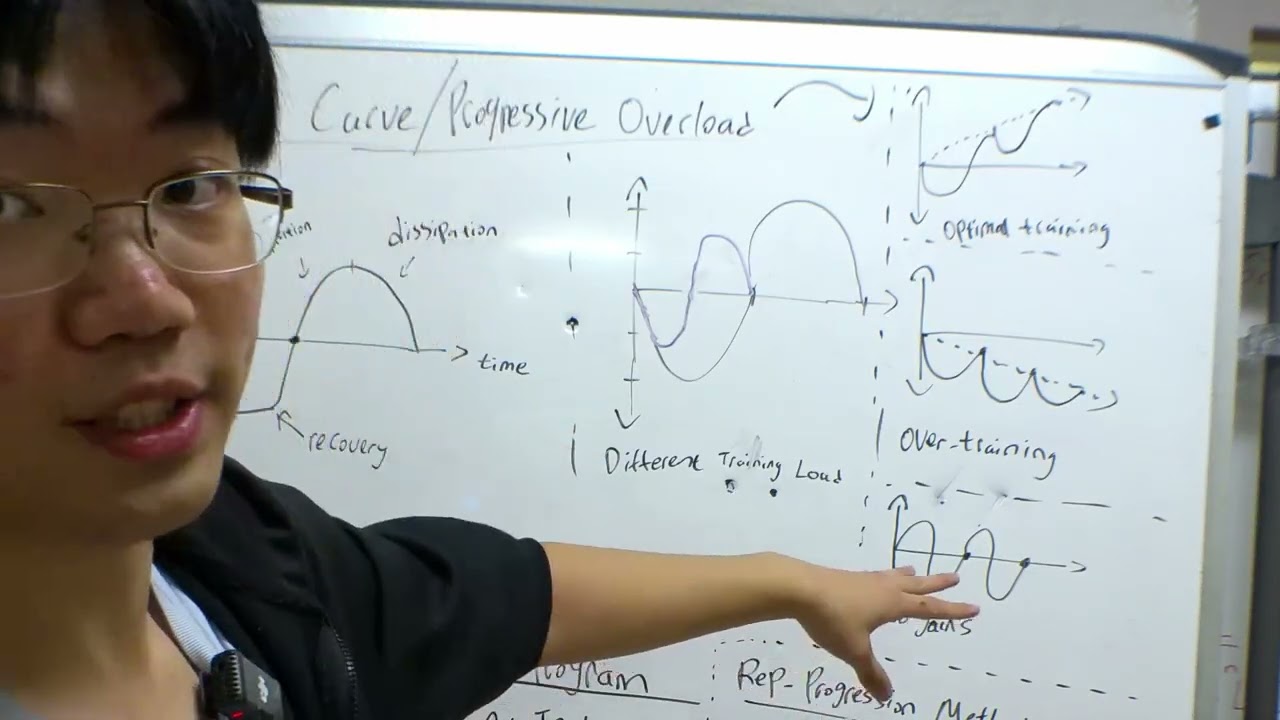 Curve/Progressive Overload
dissipation
time
recovery
Different Training Load
Optimal training
Over-training
Rep-Progression